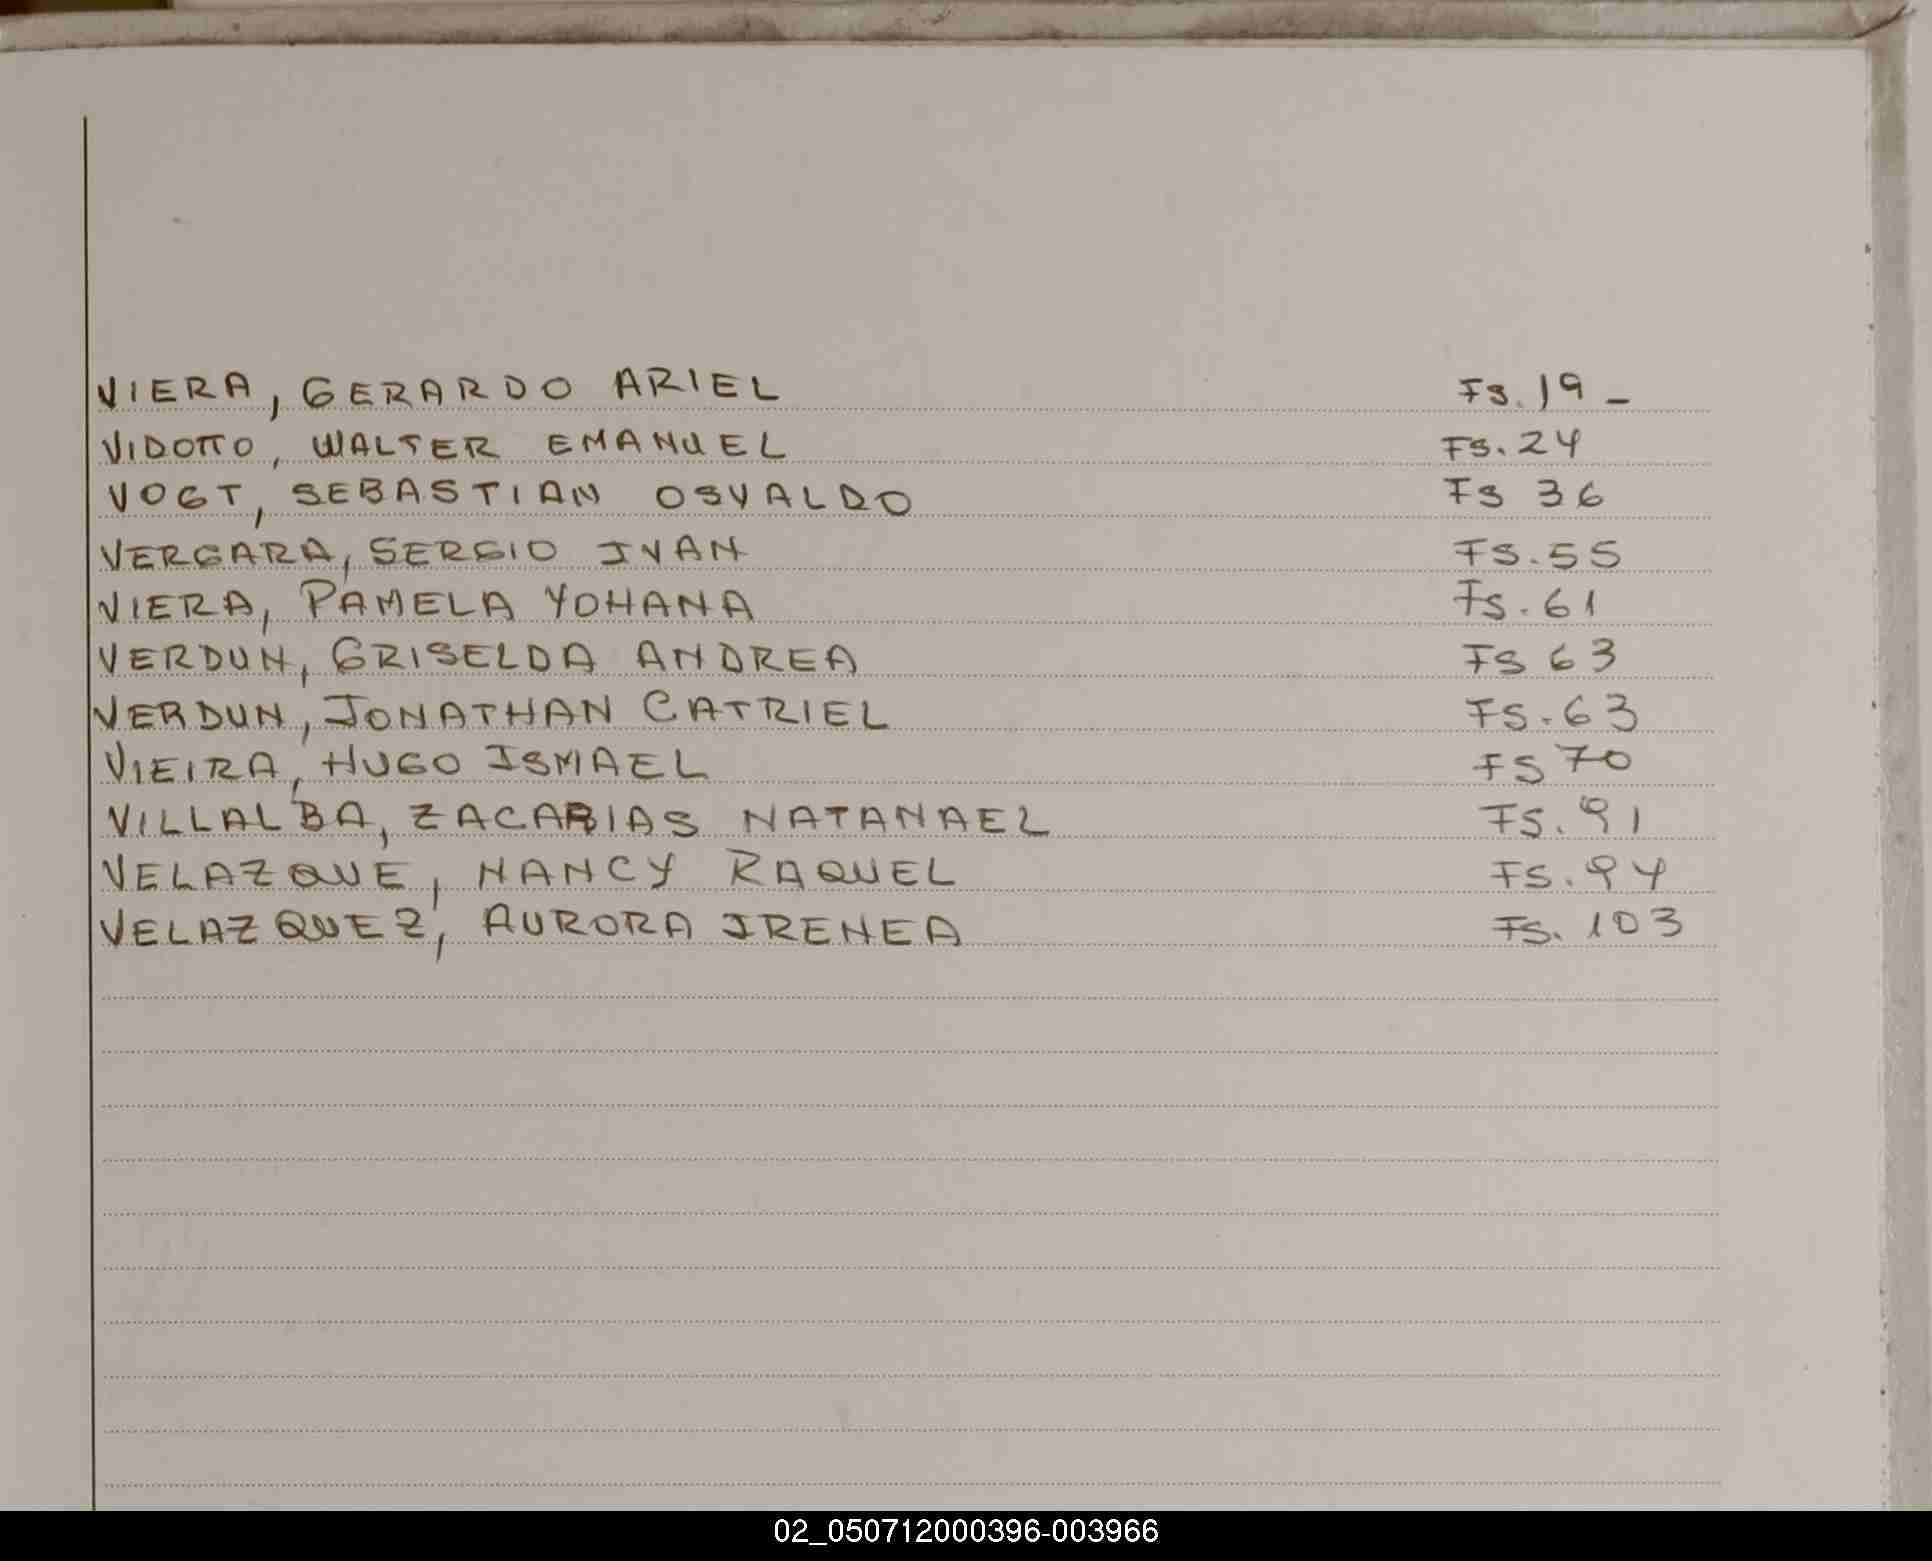 VIERA, GERARDO ARIEL Fs. 19 -
VIDOTTO, WALTER EMANUEL Fs. 24
VOGT, SEBASTIAN OSVALDO Fs 36
VERGARA, SERGIO IVAN Fs. 55
VIERA, PAMELA YOHANA Fs. 61
VERDUN, GRISELDA ANDREA Fs 63
VERDUN, JONATHAN CATRIEL Fs. 63
VIEIRA, HUGO ISMAEL Fs 70
VILLALBA, ZACARIAS NATANAEL Fs. 91
VELAZQUE, NANCY RAQUEL Fs. 94
VELAZQUEZ, AURORA IRENEA Fs. 103
02_050712000396-003966